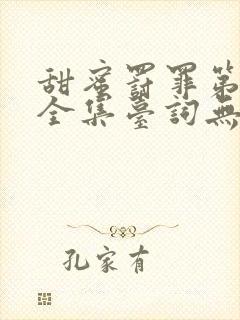 甜蜜罸罪第
全集臺詞無
孔家有